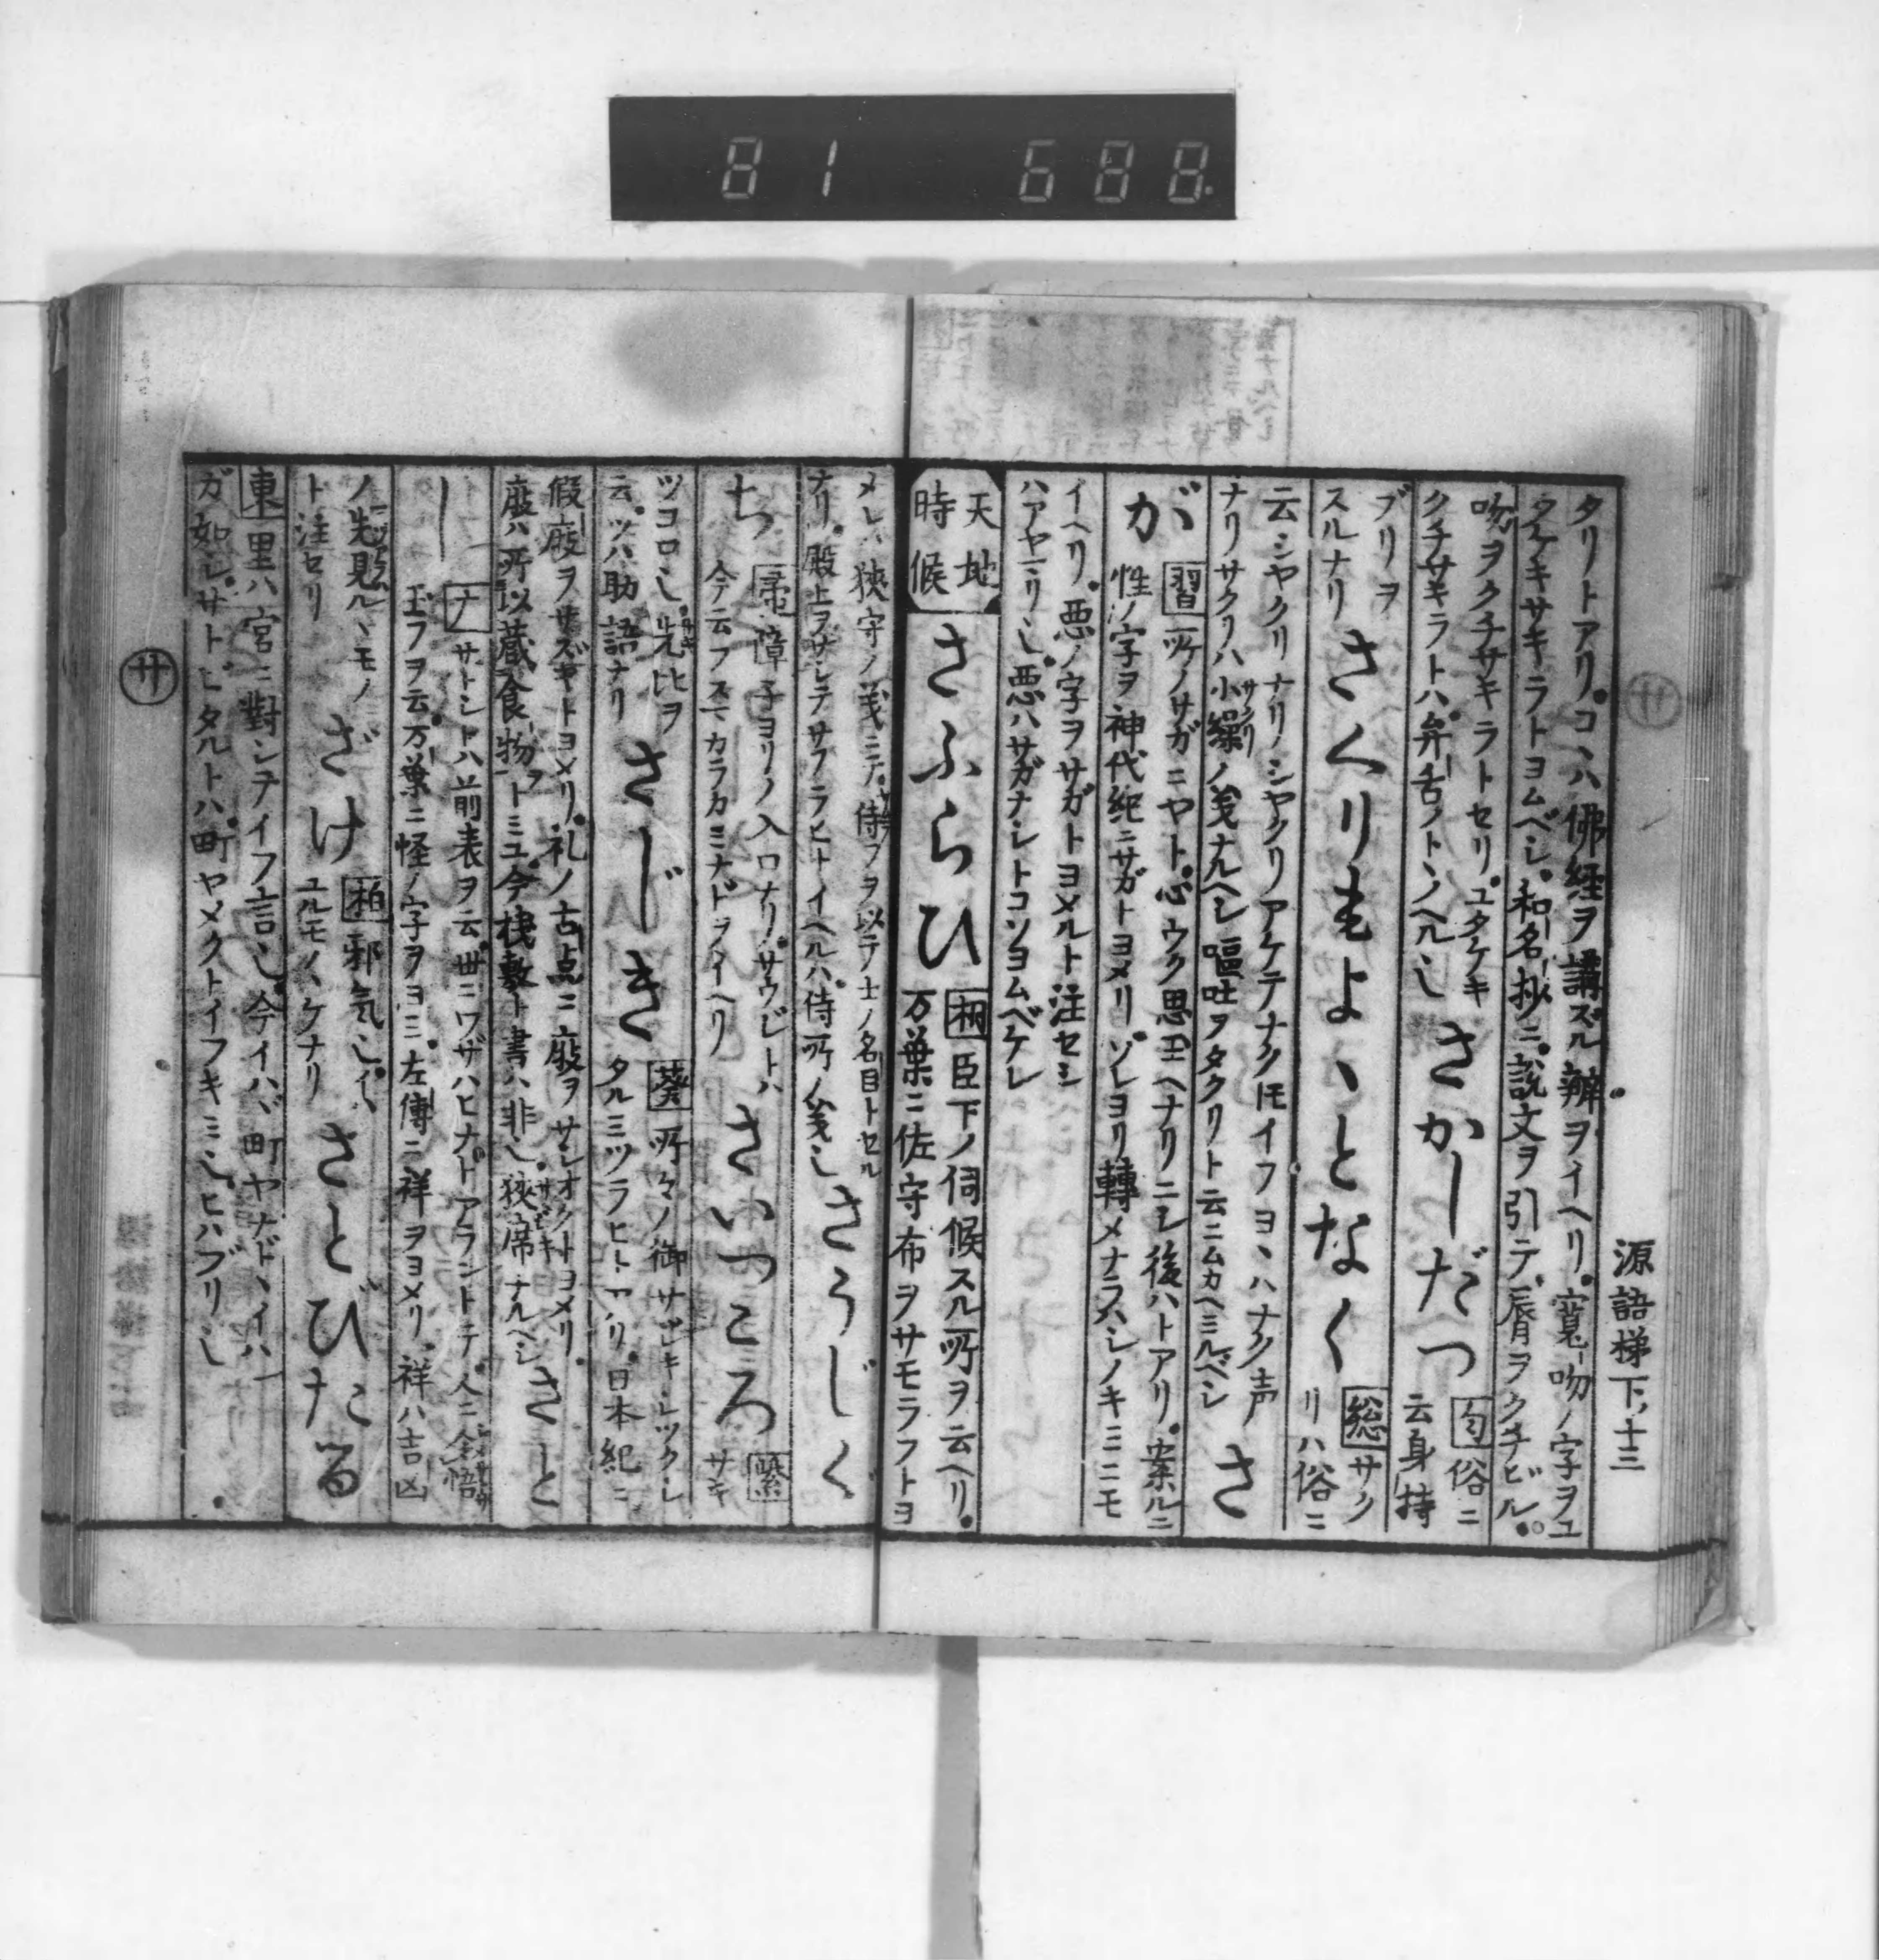 81 688
源語梯下ノ十三
タリトアリコヽハ佛経ヲ講ズル辨ヲイヘリ寛吻ノ字ヲユ
タケキサキラトヨムベシ和名抄ニ説文ヲ引テ唇ヲクチビル
吻ヲクチサキラトセリユタケキ
クチサキラトハ弁舌ノトヽノヘル也
さかしだつ
匂俗ニ
云身持
ブリヲ
スルナリ
さくりもよゝとなく
総サク
リハ俗ニ
云シヤクリナリノシヤクリアケテナク𪜈イフヨヽハナク声
ナリサクリハ小繰ノ義ナルヘシ嘔吐ヲタクリト云ニムカヘミルベシ
さ
が
習所ノサガニヤト心ウク思玉ヘナリニシ後ハトアリ案ルニ
性ノ字ヲ神代紀ニサガトヨメリソレヨリ轉メナラハシノキミニモ
イヘリ悪ノ字ヲサガトヨメルト注セシ
ハアヤマリ也悪ハサガナシトコソヨムベケレ
天地
時候
さふらひ
桐臣下ノ伺候スル所ヲ云ヘリ
万葉ニ佐守布ヲサモラフトヨ
メレハ狭守ノ義ニテ侍フヲ以テ士ノ名目トセル
ナリ殿上ヲサシテサフラヒトイヘルハ侍所ノ義也
さうじく
ち
帚障子ヨリノ入口ナリサウジトハ
今云フスマカラカミナドヲイヘリ
さいつころ
繫
サキ
ツコロ也先比ヲ
云ツハ助語ナリ
さじき
葵所々ノ御サジキシツクシ
タルミツラヒトアリ日本紀ニ
假庪ヲサズキトヨメリ礼ノ古点ニ庪ヲサシオクトヨメリ
庪ハ所以蔵食物トミユ今棧敷ト書ハ非也狭席ナルヘシ
さと
し
ナサトシトハ前表ヲ云世ニワザハヒナドアラントテ人ニ令悟
玉フヲ云万葉ニ怪ノ字ヲヨミ左傳ニ祥ヲヨメリ祥ハ吉凶
ノ先見ルヽモノ
ト注セリ
ざけ
柏邪気也イ
ユルモノヽケナリ
さとびたる
東里ハ宮ニ對シテイフ言也今イハヾ町ヤナドヽイハ
ガ如シサトビタルトハ町ヤメクトイフキミ也ヒハブリ也
サ